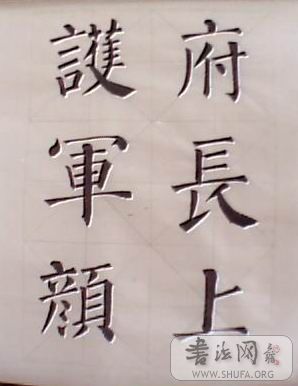 府長上
護軍顔
書法网
WWW.SHUFA.ORG